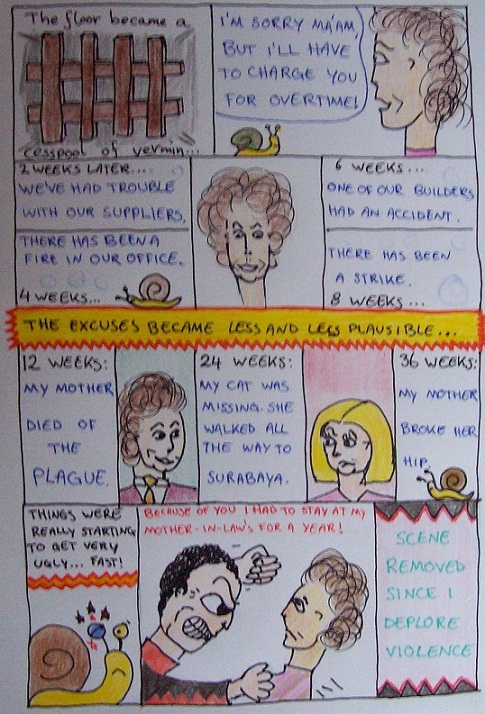 The floor became a
cesspool of vermin...
I'M SORRY MA'AM,
BUT I'LL HAVE
TO CHARGE YOU
FOR OVERTIME!
2 WEEKS LATER...
WE'VE HAD TROUBLE
WITH OUR SUPPLIERS.
THERE HAS BEEN A
FIRE IN OUR OFFICE.
4 WEEKS...
6 WEEKS...
ONE OF OUR BUILDERS
HAD AN ACCIDENT.
THERE HAS BEEN
A STRIKE.
8 WEEKS...
THE EXCUSES BECAME LESS AND LESS PLAUSIBLE...
12 WEEKS:
MY MOTHER
DIED OF
THE
PLAGUE.
24 WEEKS:
MY CAT WAS
MISSING. SHE
WALKED ALL
THE WAY TO
SURABAYA.
36 WEEKS:
MY MOTHER
BROKE HER
HIP.
THINGS WERE
REALLY STARTING
TO GET VERY
UGLY... FAST!
BECAUSE OF YOU I HAD TO STAY AT MY
MOTHER-IN-LAW'S FOR A YEAR!
SCENE
REMOVED
SINCE I
DEPLORE
VIOLENCE